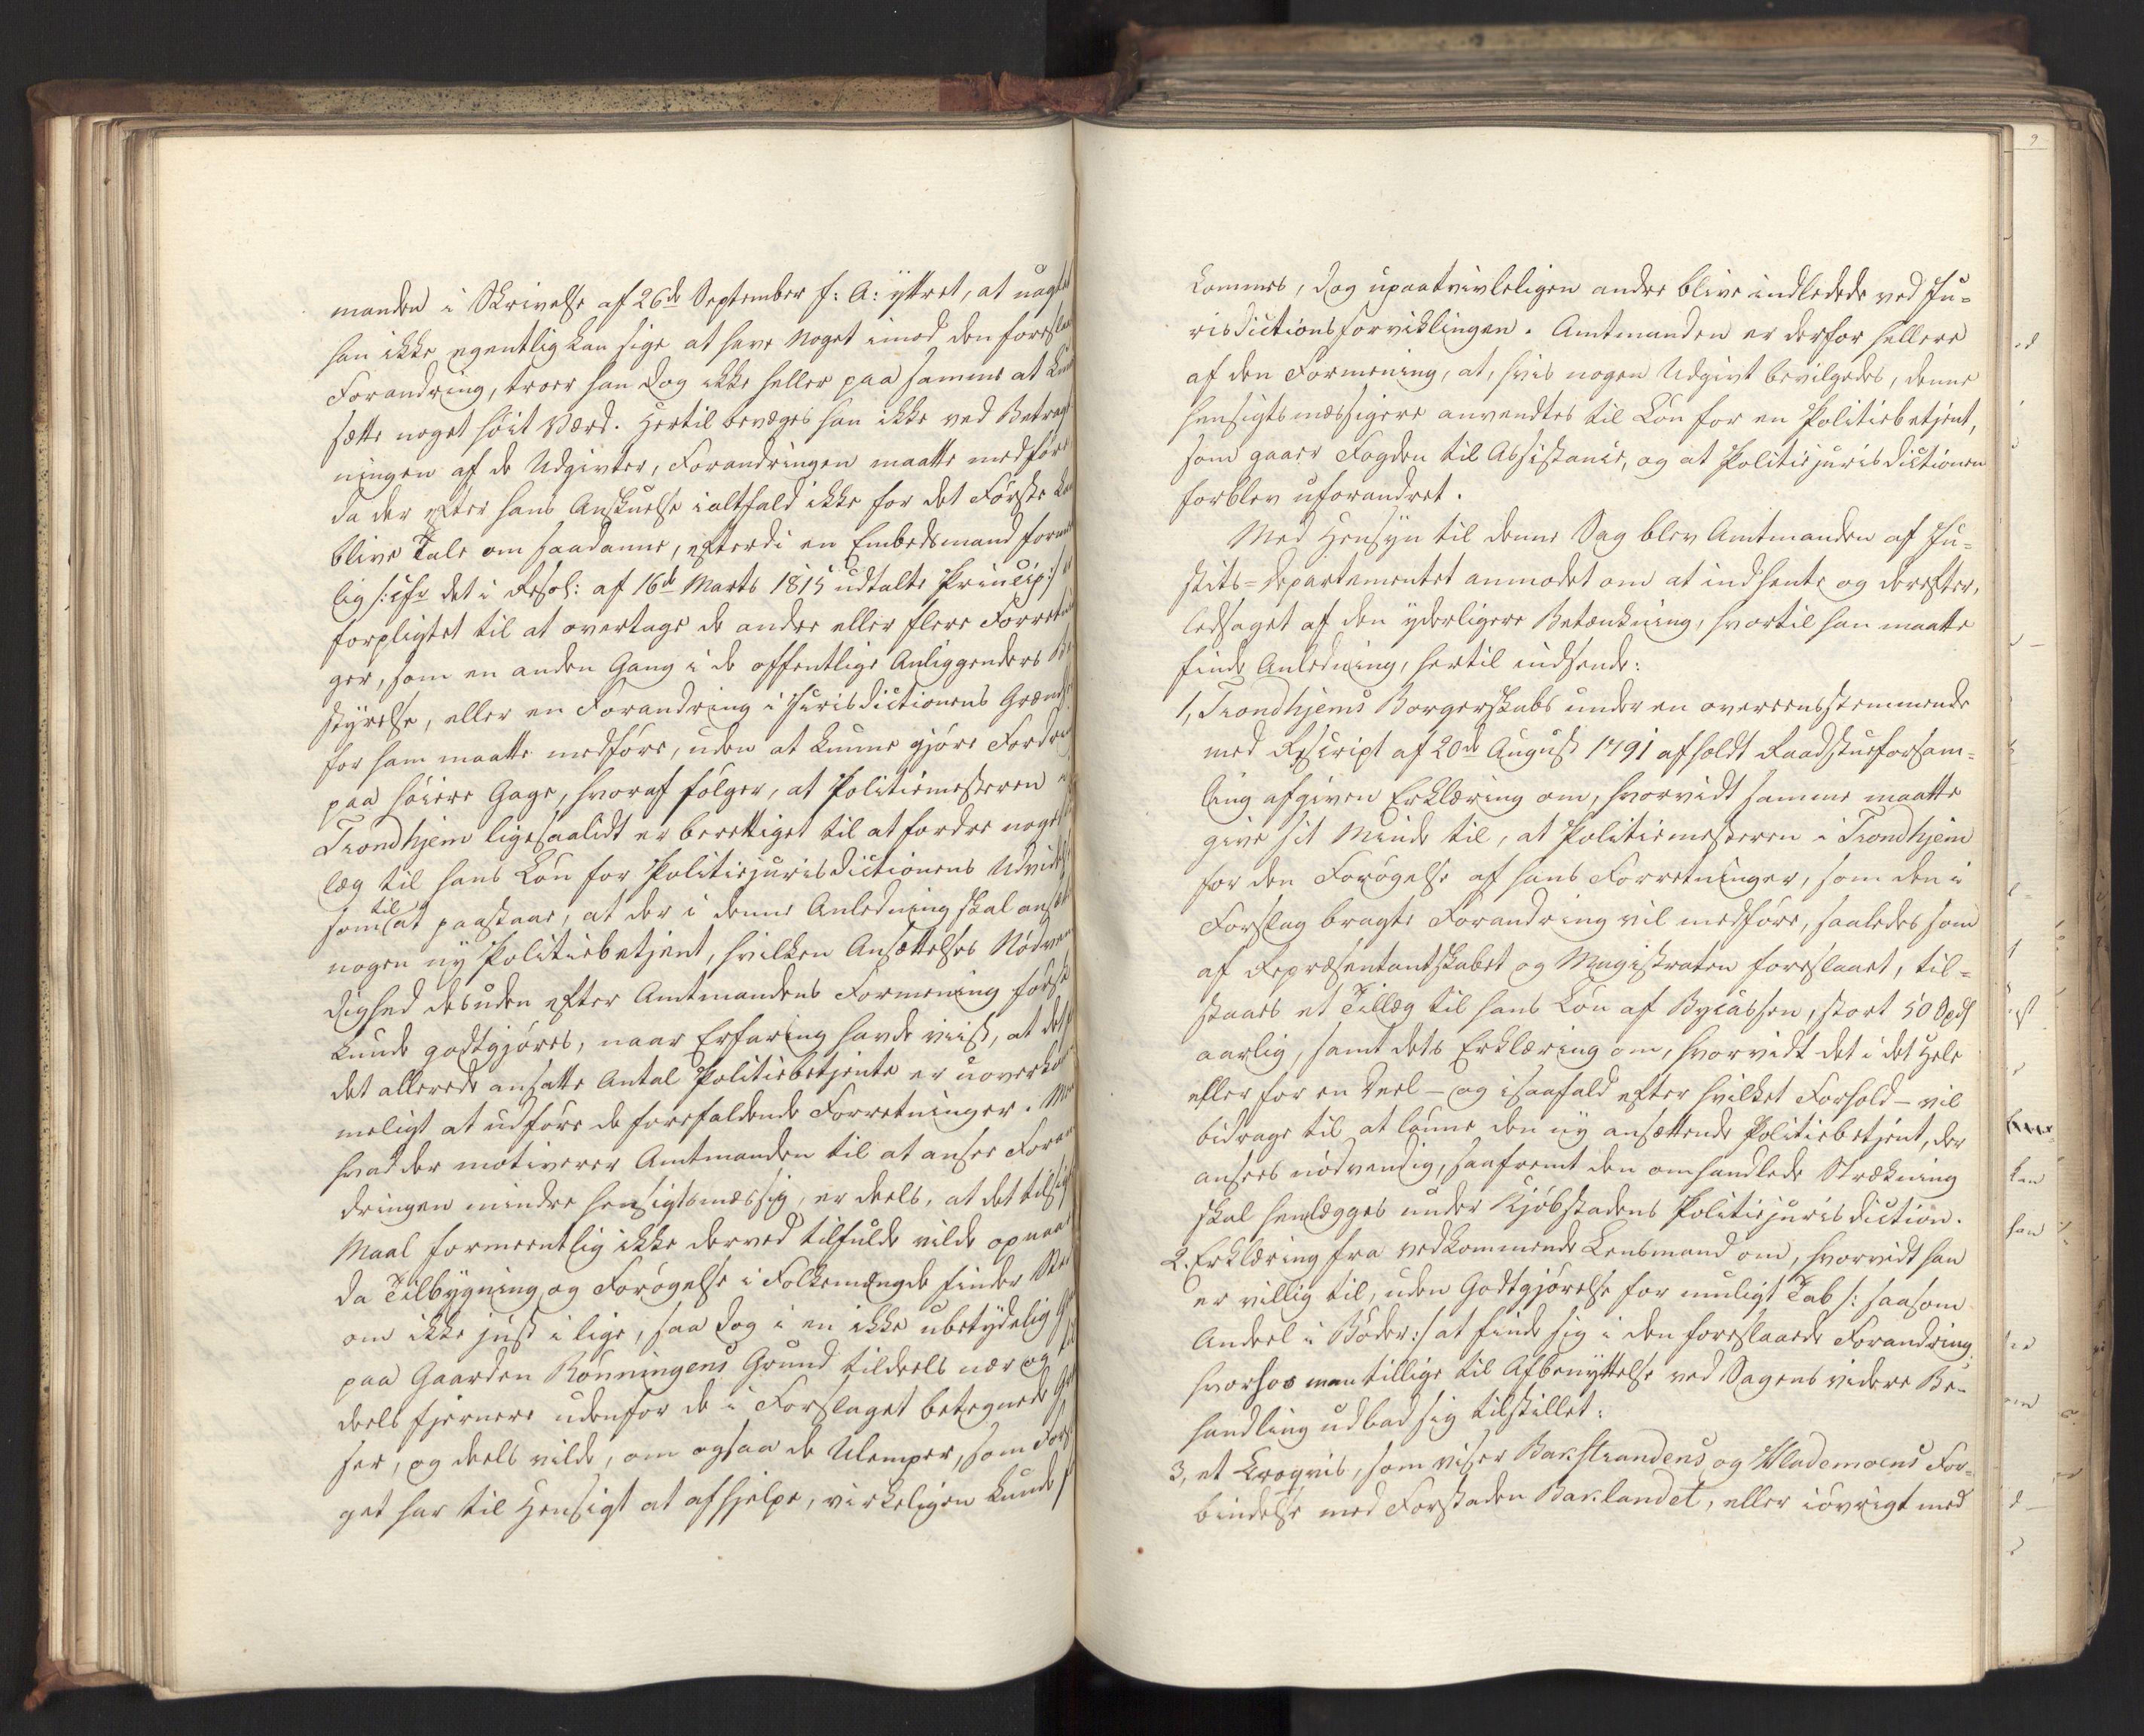 manden i Skrivelse af 26de September f: A: yttret, at uagtet
han ikke egentlig kan sige at have Noget imod den foreslaa
Forandring, troer han dog ikke heller paa samme at kun
sætte noget høit Værd. Hertil bevæges han ikke ved Betragt
ningen af de Udgivter, Forandringen maatte medføre
da der efter hans Anskuelse ialtfald ikke for det Første kan
blive Tale om saadanne, efterdi en Embedsmand forme
lig /: cfr det i Resol: af 16de Marts 1815 udtalte Princip :/
forpligtet til at overtage de andre eller flere Forretnin
ger, som en anden Gang i de offentlige Anliggenders Be
styrelse, eller en Forandring i Jurisdictionens Grændse
for ham maatte medføre, uden at kunne gjøre Fordring
paa høiere Gage, hvoraf følger, at Politiemesteren i
Trondhjem ligesaalidt er berettiget til at fordre noget
læg til hans Løn for Politiejurisdictionens Udvidelse
som til at paastaae, at der i denne Anledning skal ansætte
nogen ny Politiebetjent, hvilken Ansættelses Nødven
dighed desuden efter Amtmandens Formening først
kunde godtgjøres, naar Erfaring havde viist, at det
det allerede ansatte Antal Politiebetjente er uoverkom
meligt at udføre de forefaldende Forretninger. Men
hvad der motiverer Amtmanden til at ansee Foran
dringen mindre hensigtsmæssig, er deels, at det tilsig
Maal formeentlig ikke derved tilfulde vilde opnaaes
da Tilbygning og Forøgelse i Folkemængde finder Sted
om ikke just i lige, saa dog i en ikke ubetydelig Gr
paa Gaarden Rønningens Grund tildeels nær og til
deels fjernere udenfor de i Forslaget betegnede Græn
ser, og deels vilde, om ogsaa de Ulemper, som Forsla
get har til Hensigt at afhjelpe, virkeligen kunde f
kommes, dog upaatvivleligen andre blive indledede ved Ju-
risdictionsforviklingen. Amtmanden er derfor hellere
af den Formening, at, hvis nogen Udgivt bevilgedes, denne
hensigtsmæssigere anvendtes til Løn for en Politiebetjent,
som gaaer Fogden til Assistance, og at Politiejurisdictionen
forblev uforandret.
Med Hensyn til denne Sag blev Amtmanden af Ju-
stits-Departementet anmodet om at indhente og derefter,
ledsaget af den yderligere Betænkning, hvortil han maatte
finde Anledning, hertil indsende:
1, Trondhjems Borgerskabs under en overeensstemmende
med Rescript af 20de August 1791 afholdt Raadstueforsam-
ling afgiven Erklæring om, hvorvidt samme maatte
give sit Minde til, at Politiemesteren i Trondhjem
for den Forøgelse af hans Forretninger, som den i
Forslag bragte Forandring vil medføre, saaledes som
af Repræsentantskabet og Magistraten foreslaaet, til-
staaes et Tillæg til hans Løn af Bycassen, stort 50 Spd
aarlig, samt dets Erklæring om, hvorvidt det i det Hele
eller for en Deel – og i saafald efter hvilket Forhold – vil
bidrage til at lønne den ny ansættende Politiebetjent, der
ansees nødvendig, saafremt den omhandlede Strækning
skal henlægges under Kjøbstadens Politiejurisdiction.
2. Erklæring fra vedkommende Lensmand om, hvorvidt han
er villig til, uden Godtgjørelse for muligt Tab /: saasom
Andeel i Bøder :/ at finde sig i den foreslaaede Forandring
hvorhos man tillige til Afbenyttelse ved Sagens videre Be-
handling udbad sig tilstillet:
3, et Croqvis, som viser Bakstrandens og Mlademoens For-
bindelse med Forstaden Baklandet, eller iøvrigt med